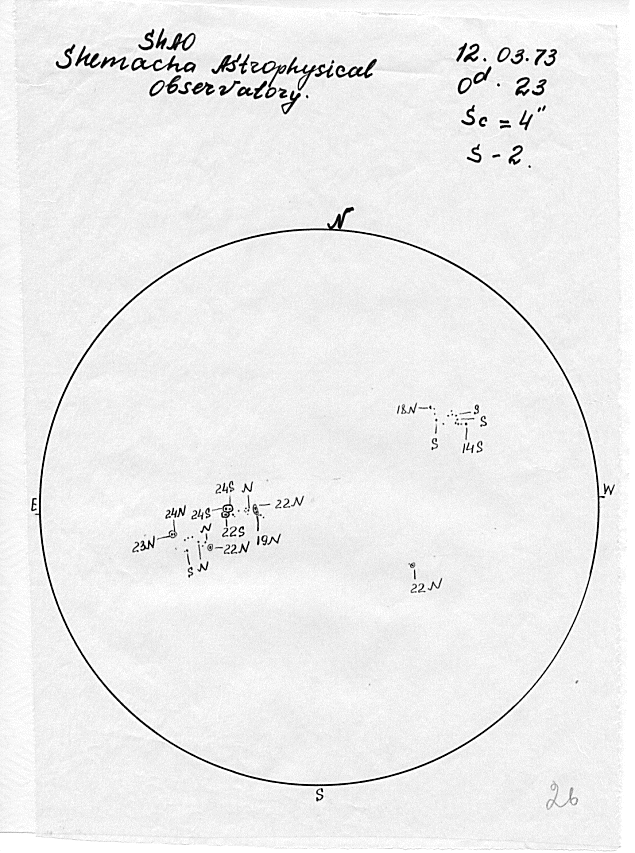 ShAO
Shemacha Astrophysical
Observatory.
12.03.73
0d. 23
Sc = 4"
S - 2.
N
18N
S
S
S
14S
W
E
24S N
24N 24S 22N
22S
23N N 22N 19N
S N
22N
S
26